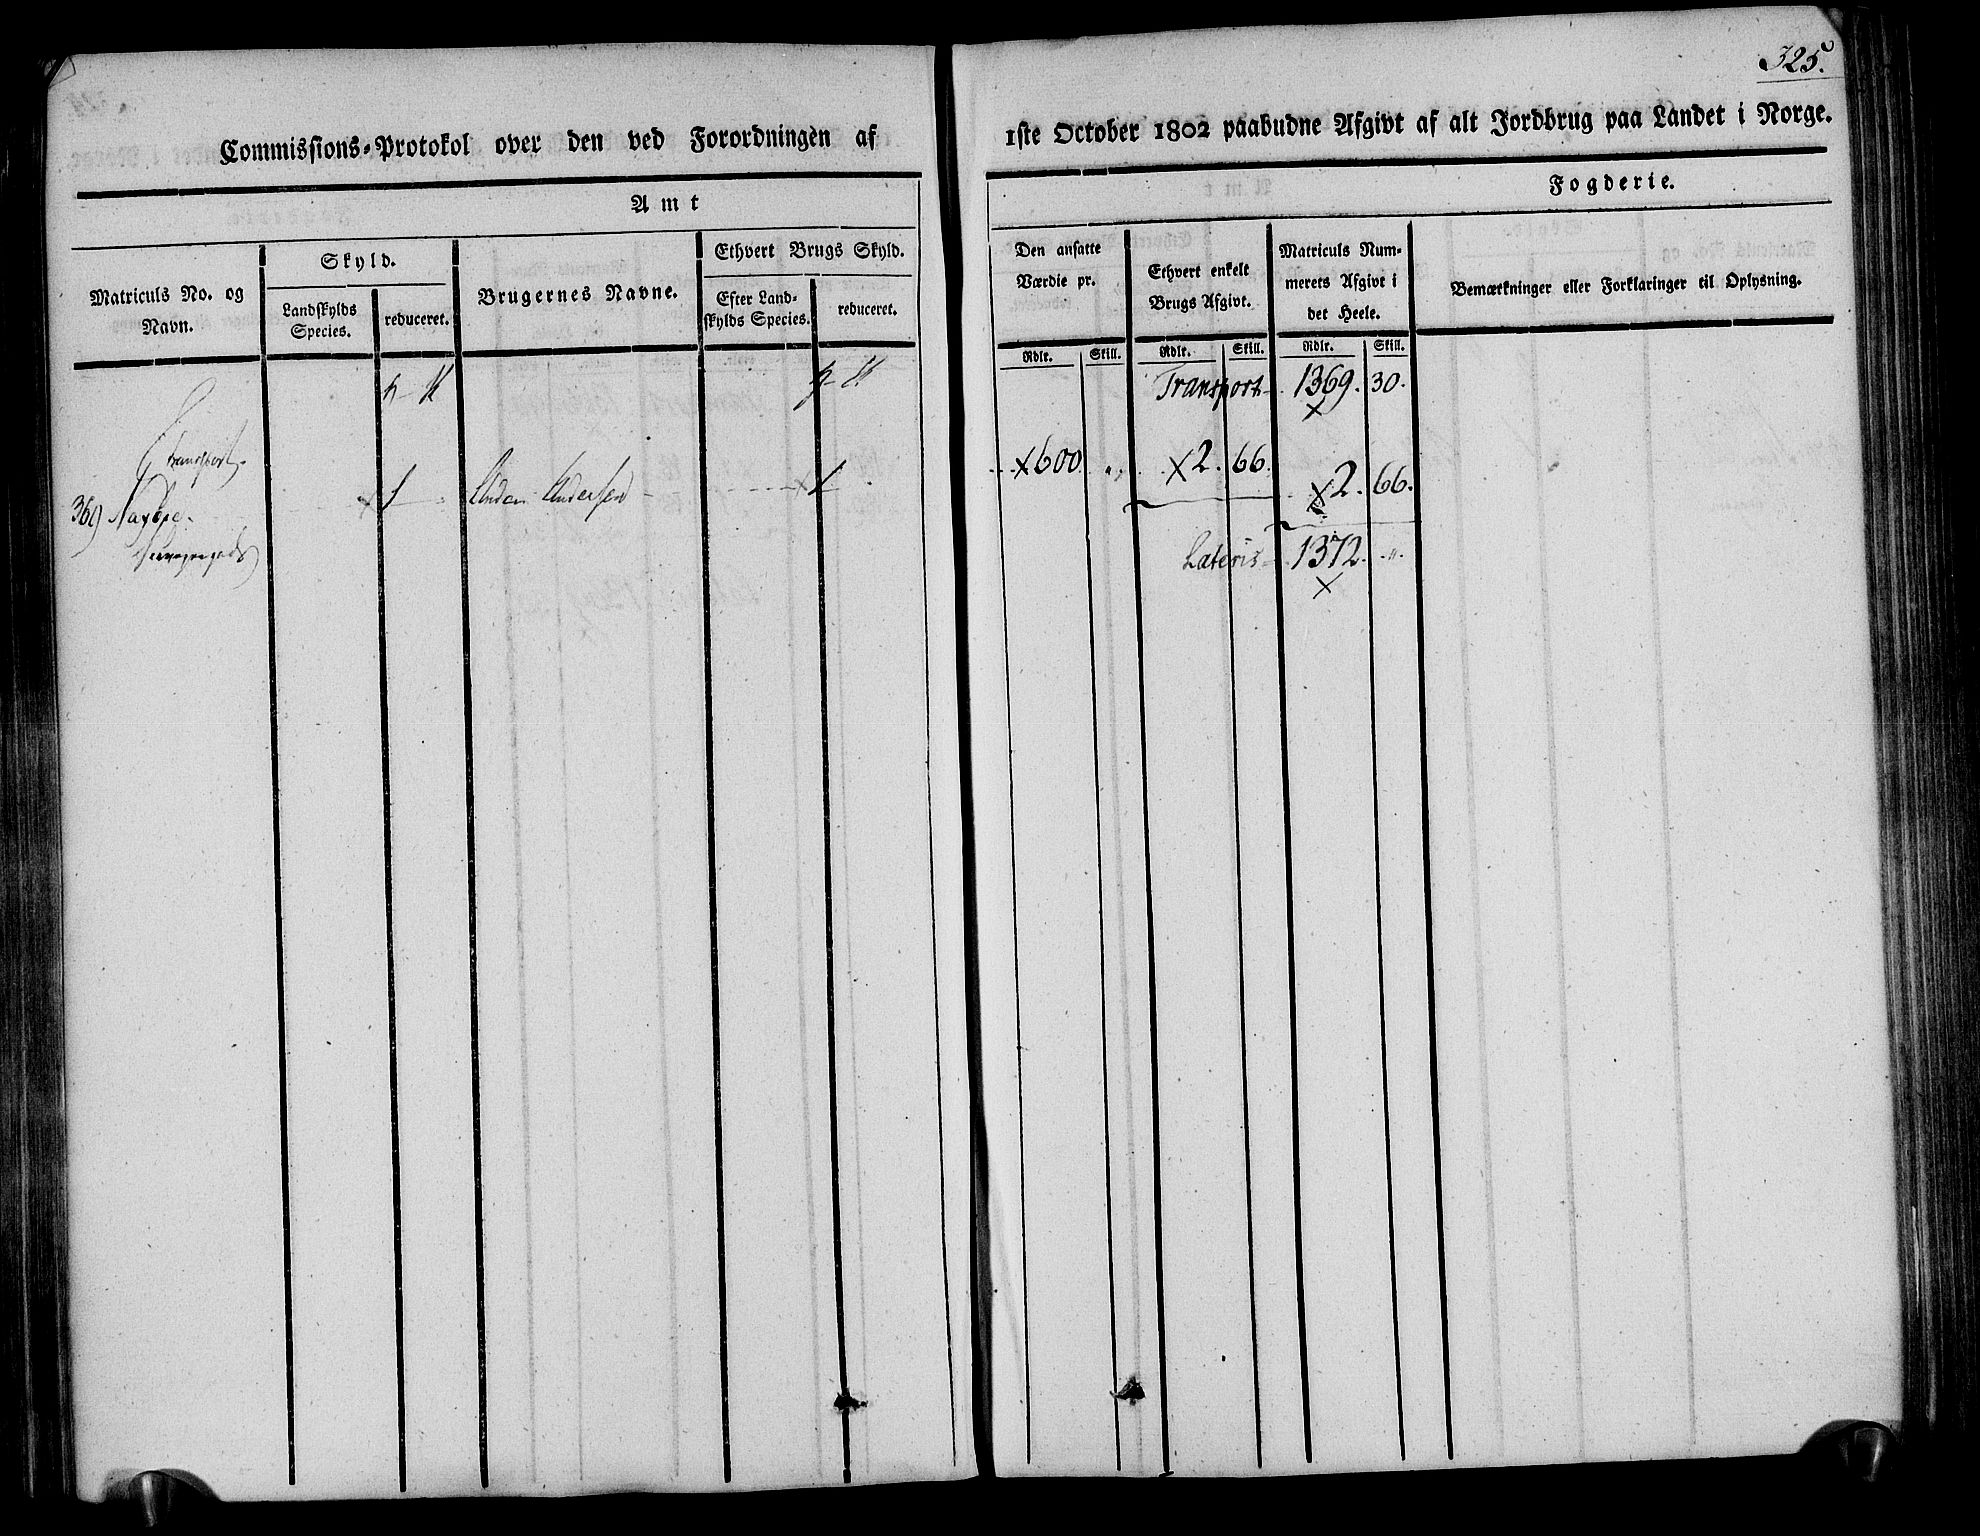 325.
Commissions-Protokol over den ved Forordningen af 1ste October 1802 paabudne Afgivt af alt Jordbrug paa Landet i Norge.
Amt
Fogderie.
Matriculs No. og Navn.
Skyld.
Landskylds Species.
reduceret.
Brugernes Navne.
Ethvert Brugs Skyld.
Efter Landskylds Species.
reduceret.
Den ansatte Værdie pr.
Ethvert enkelt Brugs Afgivt.
Matriculs Nummerets Afgivt i det Heele.
Bemærkninger eller Forklaringer til Oplysning.
Rdlr. Skill. Rdlr. Skill. Rdlr. Skill.
Transport 1369. 30.
Transport
369 1 Anders Andersen 1 600 " 2. 66. 2. 66.
Lateris 1372. "